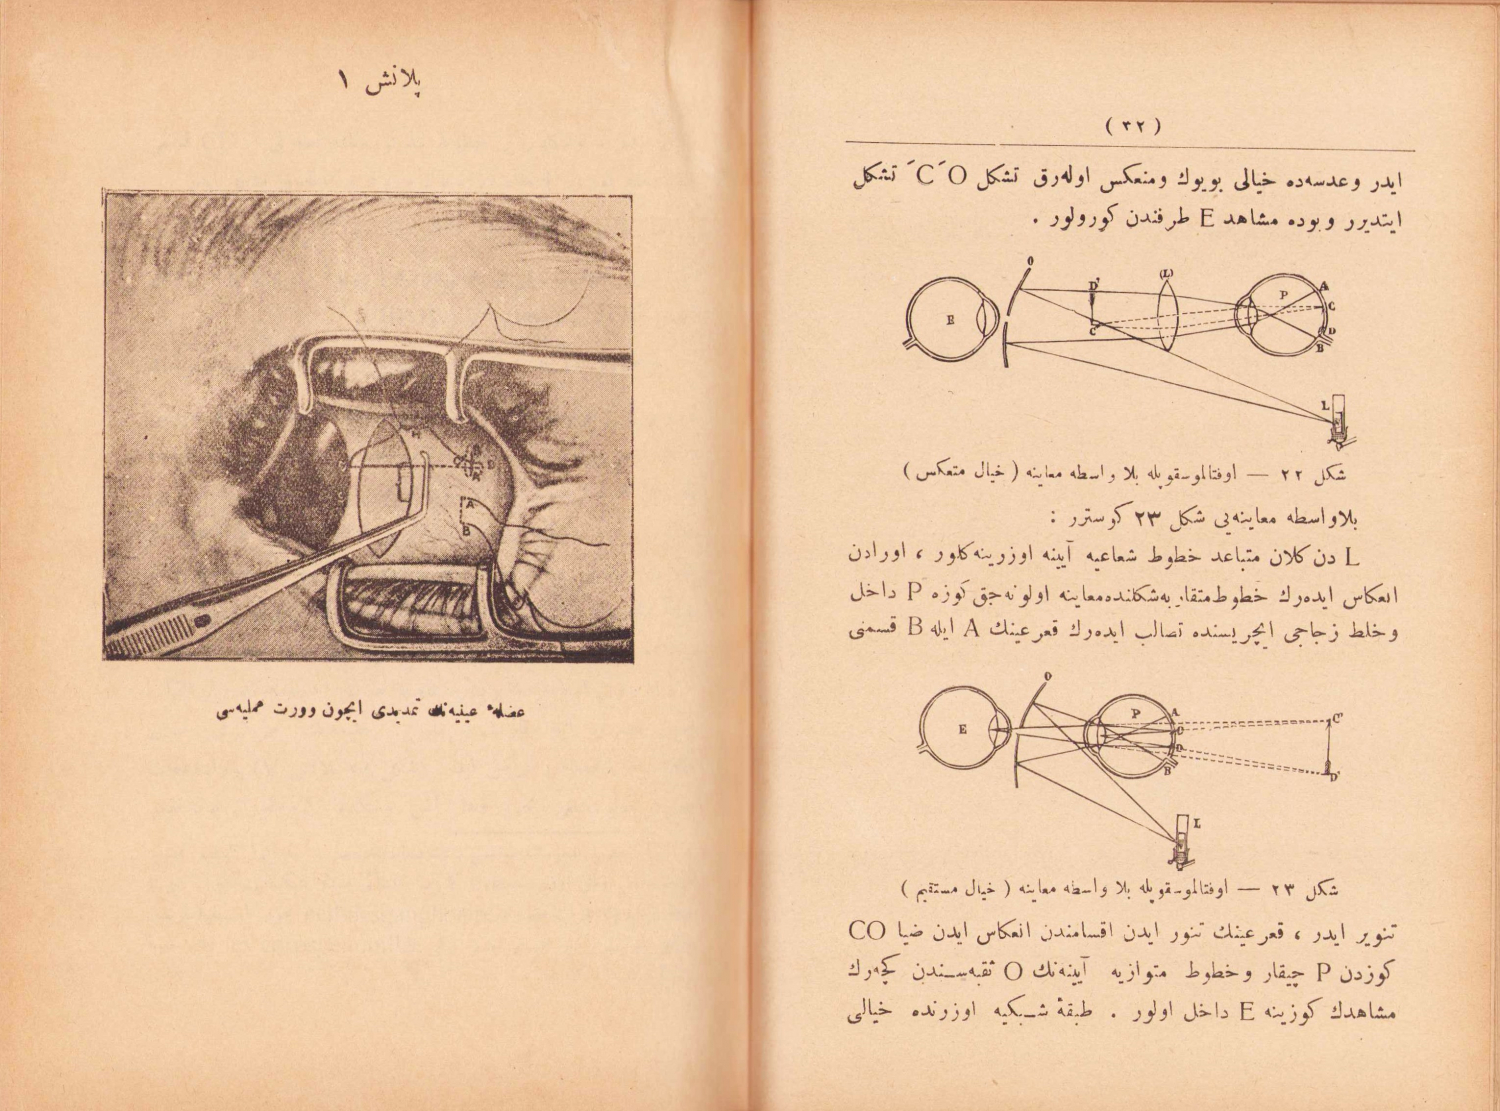 پلانش ١
M
D
A
B
عضلهٔ عینیه‌نك تمدیدی ایچون وورت عملیه‌سی
( ٣٢ )
ایدر وعدسه‌ده خیالی بویوك ومنعكس اوله‌رق تشكل C´ O´ تشكل
ایتدیرر وبوده مشاهد E طرفندن كورولور .
O
(L)
D'
A
P
C
E
C'
D
B
L
شكل ٢٢ — اوفتالموسقوپله بلا واسطه معاینه ( خیال متعكس )
بلاواسطه معاینه‌یی شكل ٢٣ كوسترر :
L دن كلان متباعد خطوط شعاعیه آیینه اوزرینه كلور ، اورادن
انعكاس ایده‌رك خطوط متقار به شكلنده معاینه اولونه‌جق كوزه P داخل
وخلط زجاجی ایچریسنده تصالب ایده‌رك قعر عینك A ایله B قسمنی
O
P
A
C'
E
C
D
B
D'
L
شكل ٢٣ — اوفتالموسقوپله بلا واسطه معاینه ( خیال مستقیم )
تنویر ایدر ، قعر عینك تنور ایدن اقسامندن انعكاس ایدن ضیا CO
كوزدن P چیقار وخطوط متوازیه آیینه‌نك O ثقبه‌سندن كچه‌رك
مشاهدك كوزینه E داخل اولور . طبقهٔ شبكیه اوزرنده خیالی